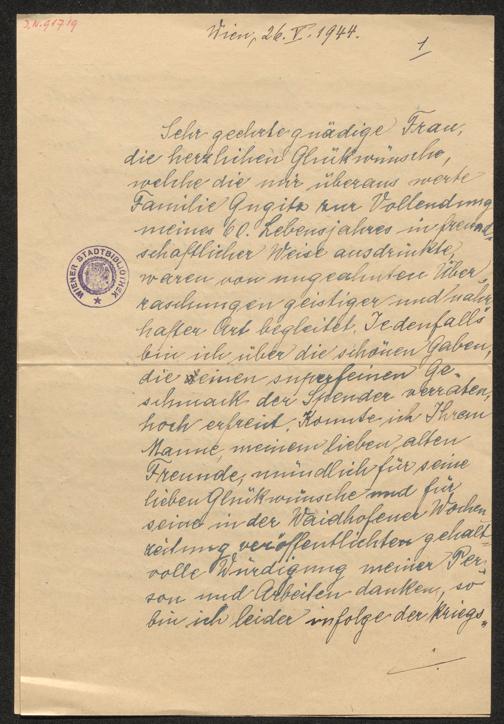 J.N. 91719
Wien, 26. V. 1944.
1
Sehr geehrte gnädige Frau,
die herzlichen Glükwünsche,
welche die mir überaus werte
Familie Gugitz zur Vollendung
meines 60. Lebensjahres in freund-
schaftlicher Weise ausdrückte,
waren von ungeahnten Über
raschungen geistiger und nahr
hafter Art begleitet. Jedenfalls
bin ich über die schönen Gaben,
die einen superfeinen Ge-
schmack der Spender verraten,
hoch erfreut. Konnte ich Ihrem
Manne, meinem lieben, alten
Freunde, mündlich für seine
lieben Glükwünsche und für
seine in der Waidhofener Wochen
zeitung veröffentlichten gehalt-
volle Würdigung meiner Per-
son und Arbeiten danken, so
bin ich leider infolge der kriegs-
WIENER STADTBIBLIOTHEK